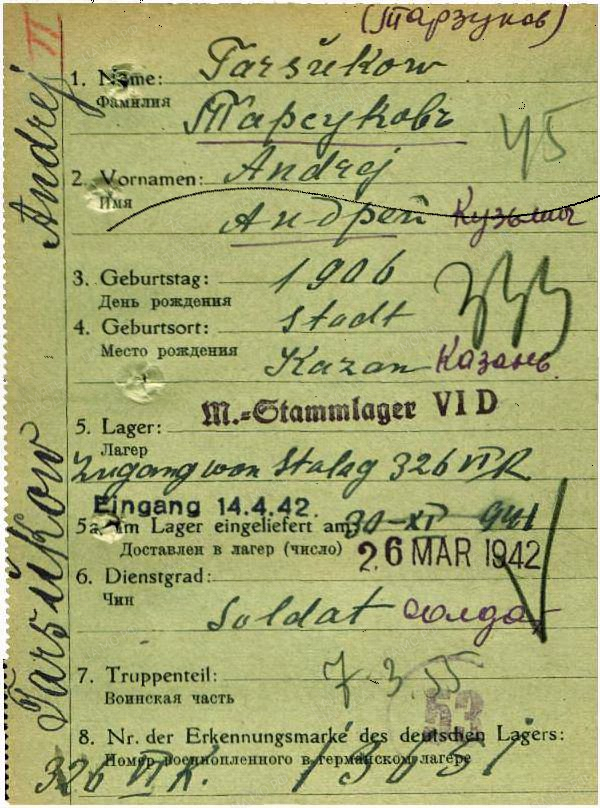 (Тарзуков)
II
1. Name: Tarsŭkow
Фамилия
Тарсуковъ
45
2. Vornamen: Andrej
Имя
Андрей Кузьмич
3. Geburtstag: 1906
День рождения
4. Geburtsort: Stadt
Место рождения
Kazan Казань
5. Lager: M.=Stammlager VI D
Лагер
Zugang von Stalag 326 VI K
Eingang 14.4.42.
5a. Im Lager eingeliefert am: 30-XI-941
Доставлен в лагер (число) 26 MAR 1942
6. Dienstgrad:
Чин
Soldat солдат
7. Truppenteil: 7.3.55
Воинская часть
53
8. Nr. der Erkennungsmarke des deutschen Lagers:
Номер военнопленного в германском лагере
326 VI K.
Tarsŭkow Andrej